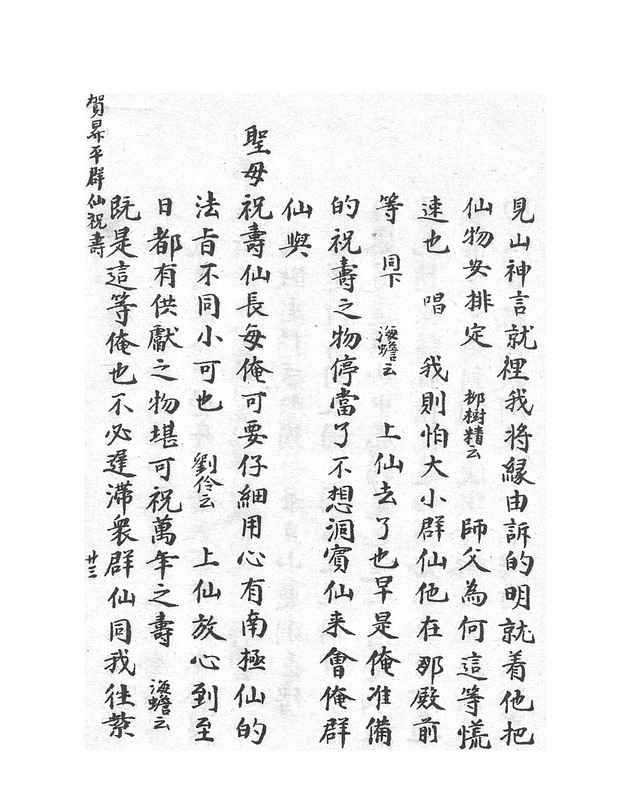 見山神言就裡我將緣由訴的明就着他把
仙物安排定 柳樹精云 師父為何這等慌
速也 唱 我則怕大小群仙他在那殿前
等 同下 海蟾云 上仙去了也早是俺准備
的祝壽之物停當了不想洞賓仙来會俺群
仙與
聖母祝壽仙長每俺可要仔細用心有南極仙的
法旨不同小可也 劉伶云 上仙放心到至
日都有供獻之物堪可祝萬年之壽 海蟾云
既是這等俺也不必遲滯衆群仙同我往紫
賀昇平群仙祝壽 廿三